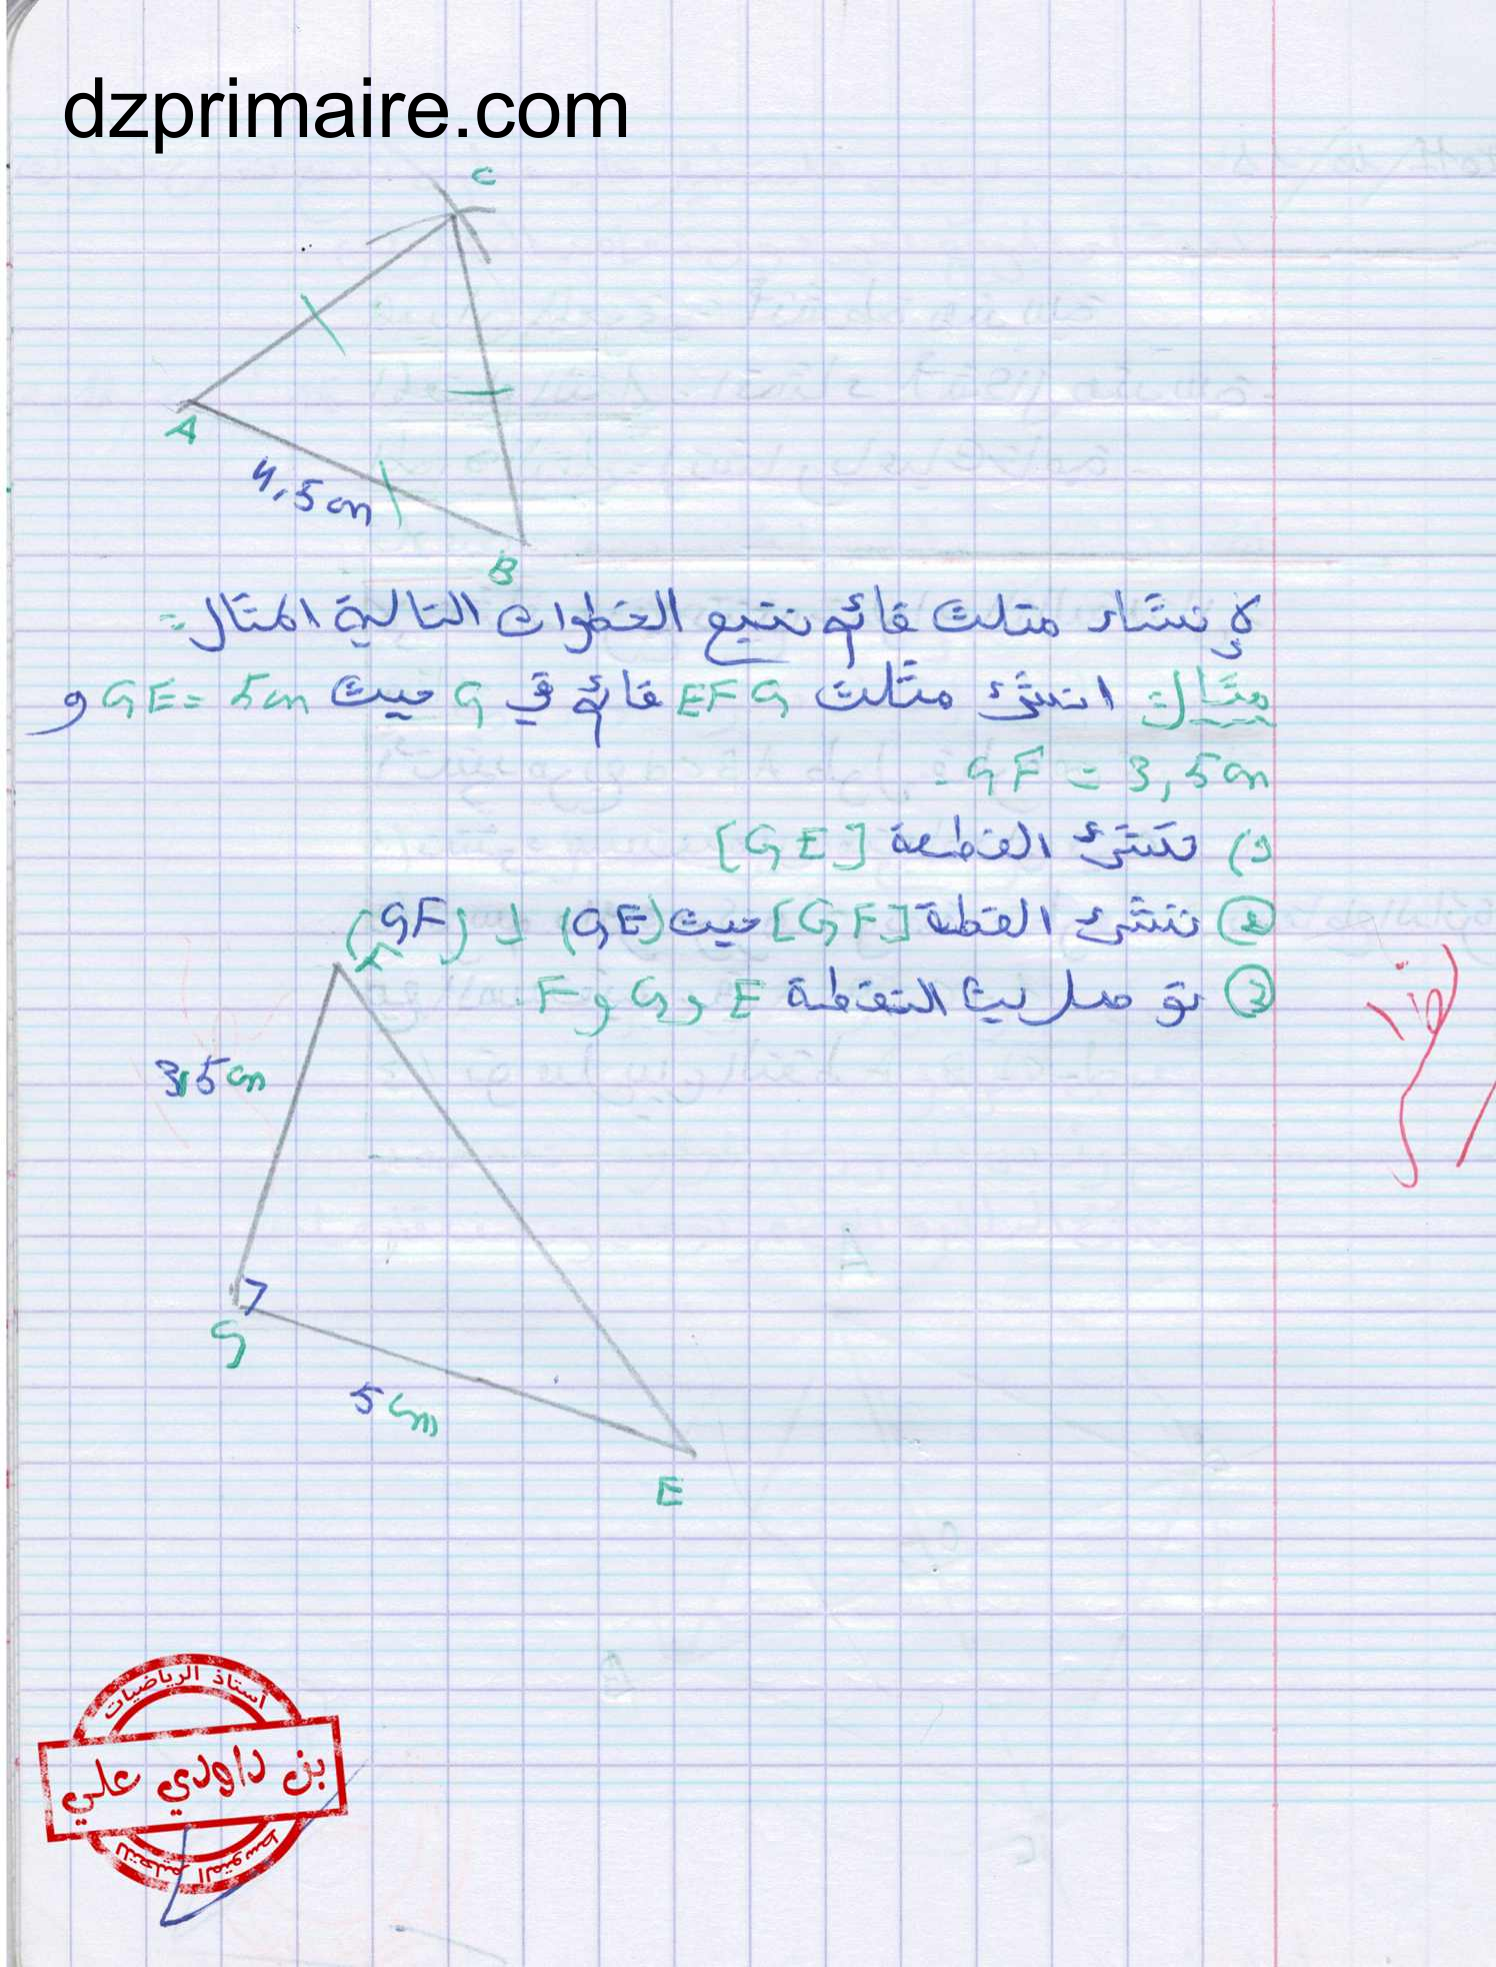 dzprimaire.com
C
A
4,5cm
B
لإنشاء مثلث قائم نتبع الخطوات التالية المثال:
مثال: انشئ مثلث EFG قائم في G حيث GE = 5cm و
GF = 3,5cm.
ننشئ القطعة [GE]
② ننشئ القطة [GF] حيث (GE) ⊥ (GF)
③ نوصل بين النقطة E و G و F.
3,5cm
G
5cm
E
أستاذ الرياضيات
بن داودي علي
للتعليم المتوسط